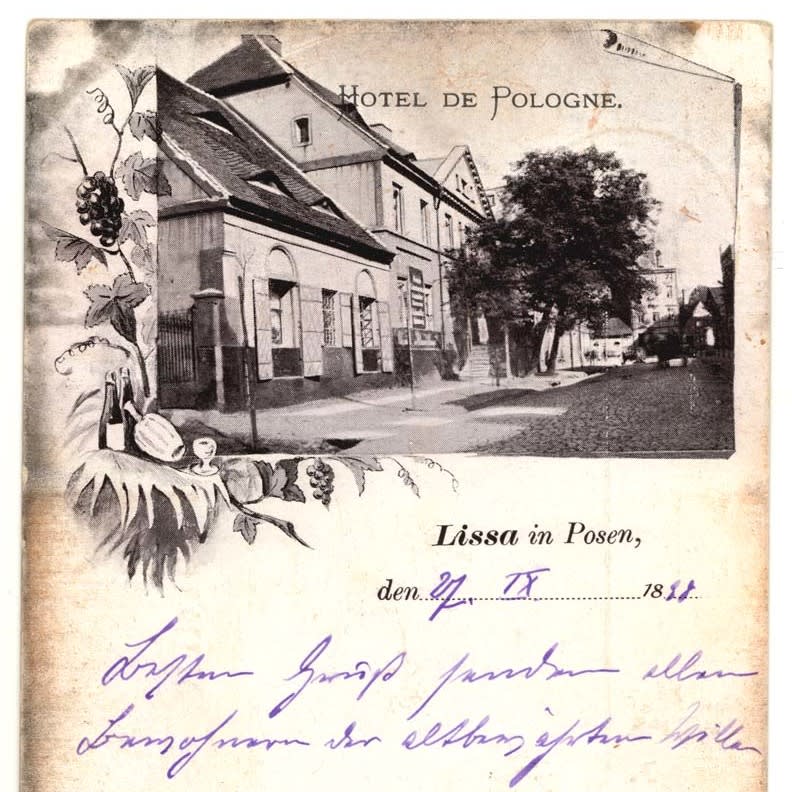 HOTEL DE POLOGNE.
Lissa in Posen,
den 27. IX. 1898
Besten Gruß senden allen
Bewohnern der altbewährten Villa